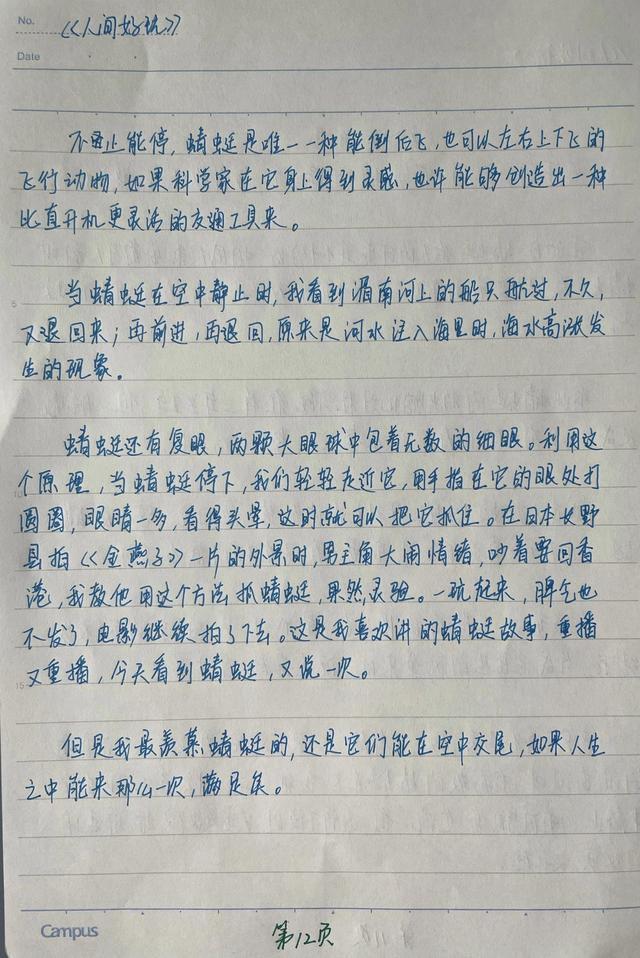 No.
《人间好玩》
Date
不止能停，蜻蜓是唯一一种能倒后飞，也可以左右上下飞的
飞行动物，如果科学家在它身上得到灵感，也许能够创造出一种
比直升机更灵活的交通工具来。
当蜻蜓在空中静止时，我看到湄南河上的船只航过，不久，
又退回来；再前进，再退回，原来是河水注入海里时，海水高涨发
生的现象。
蜻蜓还有复眼，两颗大眼球中包着无数的细眼。利用这
个原理，当蜻蜓停下，我们轻轻走近它，用手指在它的眼处打
圆圈，眼睛一多，看得头晕，这时就可以把它抓住。在日本长野
县拍《金燕子》一片的外景时，男主角大闹情绪，吵着要回香
港，我教他用这个方法抓蜻蜓，果然灵验。一玩起来，脾气也
不发了，电影继续拍了下去。这是我喜欢讲的蜻蜓故事，重播
又重播，今天看到蜻蜓，又说一次。
但是我最羡慕蜻蜓的，还是它们能在空中交尾，如果人生
之中能来那么一次，满足矣。
Campus
第12页